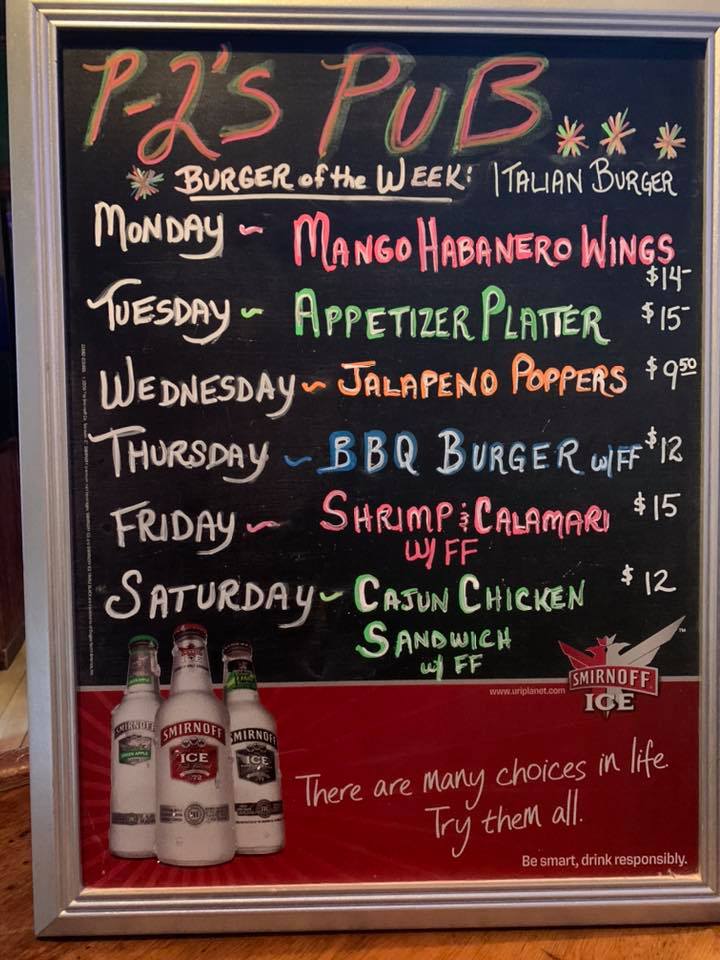 P-2'S PUB...
BURGER of the WEEK: ITALIAN BURGER
MONDAY ~ MANGO HABANERO WINGS
$14-
TUESDAY ~ APPETIZER PLATTER $15-
WEDNESDAY ~ JALAPENO POPPERS $9.50
THURSDAY ~ BBQ BURGER w/FF $12
FRIDAY ~ SHRIMP & CALAMARI $15
W/ FF
SATURDAY ~ CAJUN CHICKEN $12
SANDWICH
w/ FF
www.uriplanet.com
SMIRNOFF
ICE
TM
SMIRNOFF
GREEN APPLE
SMIRNOFF
ICE
72
SMIRNOFF
ICE
There are many choices in life.
Try them all.
Be smart, drink responsibly.